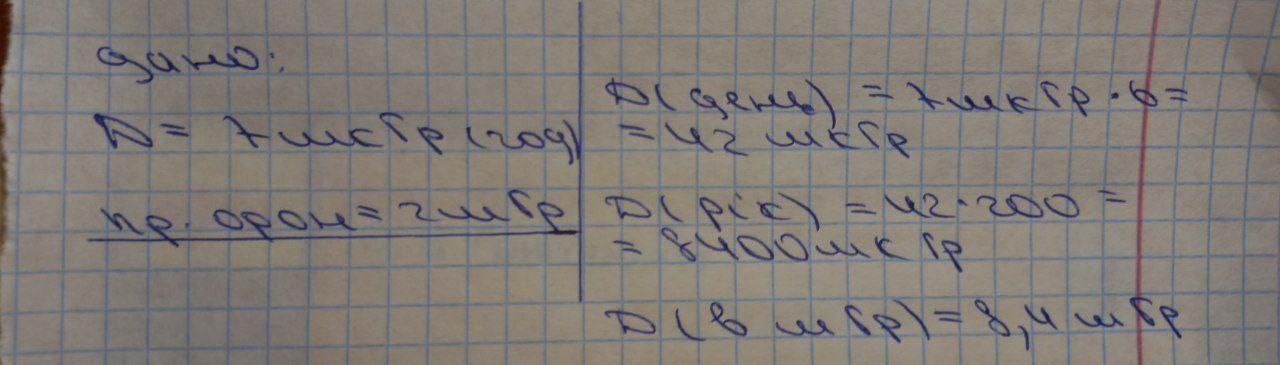 Дано:
D = 7 мкГр (год)
пр. фон = 2 мГр
D (день) = 7 мкГр · 6 =
= 42 мкГр
D (рік) = 42 · 200 =
= 8400 мкГр
D (в мГр) = 8,4 мГр